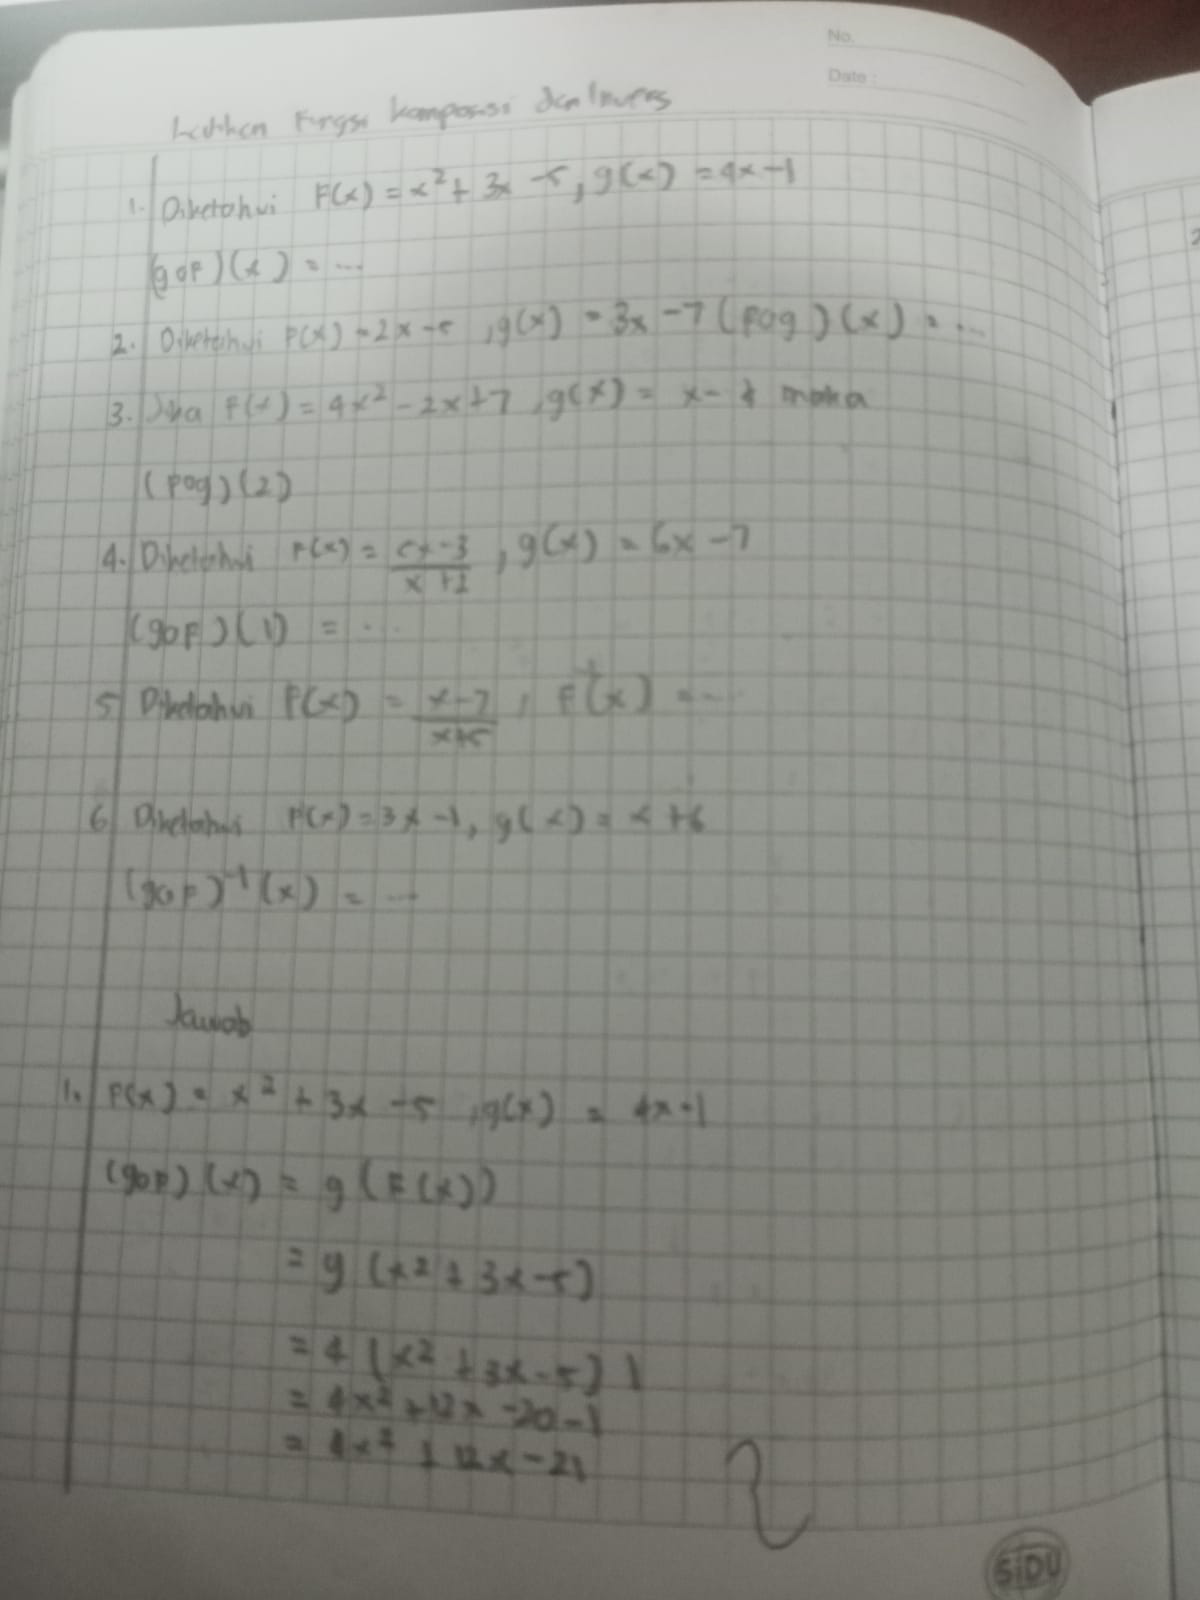 No.
Date :
Latihan Fungsi komposisi dan Invers
1. Diketahui F(x) = x² + 3x - 5, g(x) = 4x - 1
(goF)(x) = ...
2. Diketahui F(x) = 2x - 5, g(x) = 3x - 7 (Fog)(x) = ...
3. Jika F(x) = 4x² - 2x + 7, g(x) = x - maka
(Fog)(2)
4. Diketahui F(x) = x - 3 / x + 2, g(x) = 6x - 7
(goF)(1) = ...
5 Diketahui F(x) = x - 7 / x + 5, F(x) = ...
6 Diketahui F(x) = 3x - 1, g(x) = x + 6
(goF)⁻¹(x) = ...
Jawab
1. F(x) = x² + 3x - 5, g(x) = 4x - 1
(goF)(x) = g(F(x))
= g(x² + 3x - 5)
= 4(x² + 3x - 5) 1
= 4x² + 12x - 20 - 1
= 4x² + 12x - 21
SiDU